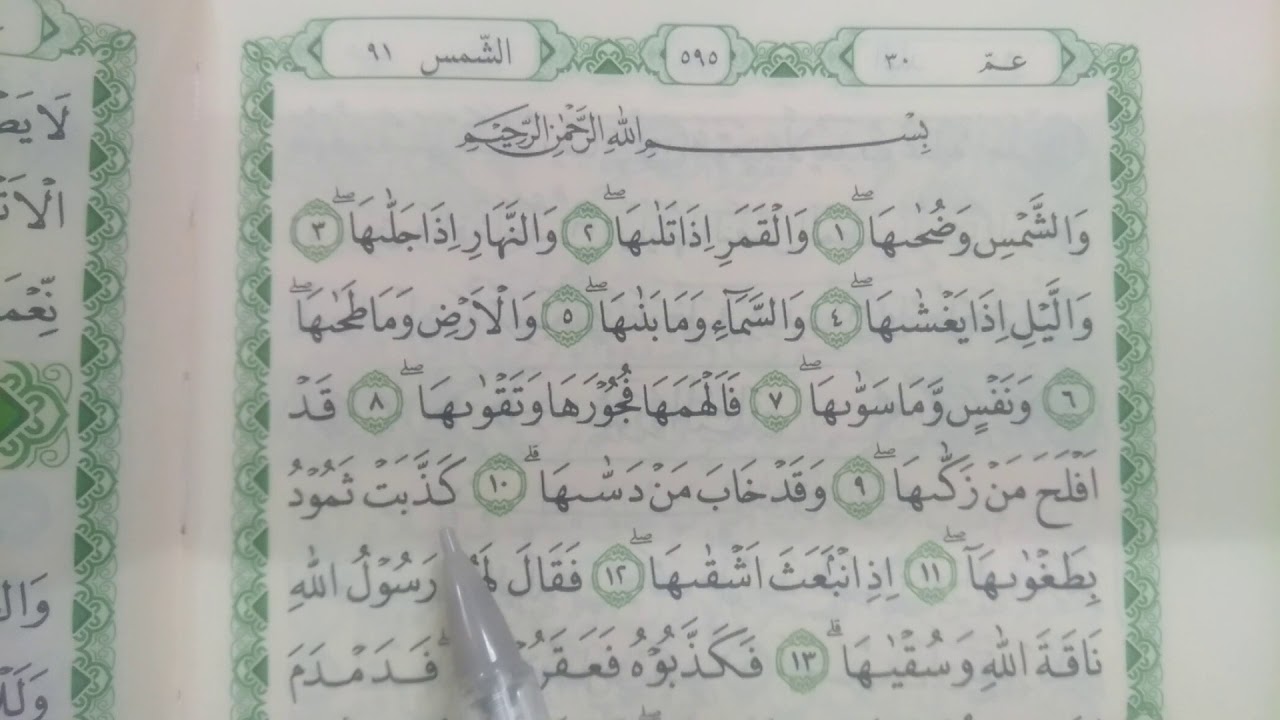 عمّ ٣٠
٥٩٥
الشّمس ٩١
بِسْمِ اللهِ الرَّحْمٰنِ الرَّحِيْمِ
وَالشَّمْسِ وَضُحٰىهَا ۖ ١ وَالْقَمَرِ اِذَا تَلٰىهَا ۖ ٢ وَالنَّهَارِ اِذَا جَلّٰىهَا ۖ ٣
وَالَّيْلِ اِذَا يَغْشٰىهَا ۖ ٤ وَالسَّمَاۤءِ وَمَا بَنٰىهَا ۖ ٥ وَالْاَرْضِ وَمَا طَحٰىهَا ۖ
٦ وَنَفْسٍ وَّمَا سَوّٰىهَا ۖ ٧ فَاَلْهَمَهَا فُجُوْرَهَا وَتَقْوٰىهَا ۖ ٨ قَدْ
اَفْلَحَ مَنْ زَكّٰىهَا ۖ ٩ وَقَدْ خَابَ مَنْ دَسّٰىهَا ۗ ١٠ كَذَّبَتْ ثَمُوْدُ
بِطَغْوٰىهَآ ۖ ١١ اِذِ انْۢبَعَثَ اَشْقٰىهَا ۖ ١٢ فَقَالَ رَسُوْلُ اللهِ
نَاقَةَ اللهِ وَسُقْيٰىهَا ۗ ١٣ فَكَذَّبُوْهُ فَدَمْدَمَ